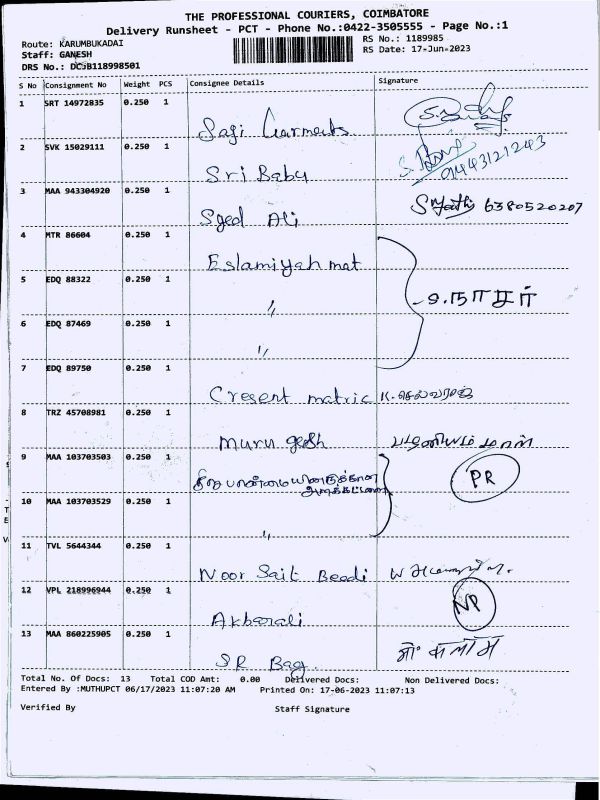 THE PROFESSIONAL COURIERS, COIMBATORE
Delivery Runsheet - PCT - Phone No.:0422-3505555 - Page No.:1
Route: KARUMBUKADAI
RS No.: 1189985
Staff: GANESH
RS Date: 17-Jun-2023
DRS No.: DCJB118998501
S No Consignment No Weight PCS Consignee Details Signature
1 SRT 14972835 0.250 1 Sagi Garments
2 SVK 15029111 0.250 1 Sri Babu 9443121243
3 MAA 943304920 0.250 1 Syed Ali 6380520207
4 MTR 86604 0.250 1 Eslamiyah mat
5 EDQ 88322 0.250 1 "
உ.நாசர்
6 EDQ 87469 0.250 1 "
7 EDQ 89750 0.250 1 Cresent matric K.செல்வராஜ்
8 TRZ 45708981 0.250 1 Murugesh
9 MAA 103703503 0.250 1 சிறுபான்மையினருக்கான
அறக்கட்டளை
PR
10 MAA 103703529 0.250 1 "
11 TVL 5644344 0.250 1 Noor Sait Beedi
12 VPL 218996944 0.250 1 Akbarali NP
13 MAA 860225905 0.250 1 SR Bag. मो. कलाम
Total No. Of Docs: 13 Total COD Amt: 0.00 Delivered Docs: Non Delivered Docs:
Entered By :MUTHUPCT 06/17/2023 11:07:20 AM Printed On: 17-06-2023 11:07:13
Verified By Staff Signature